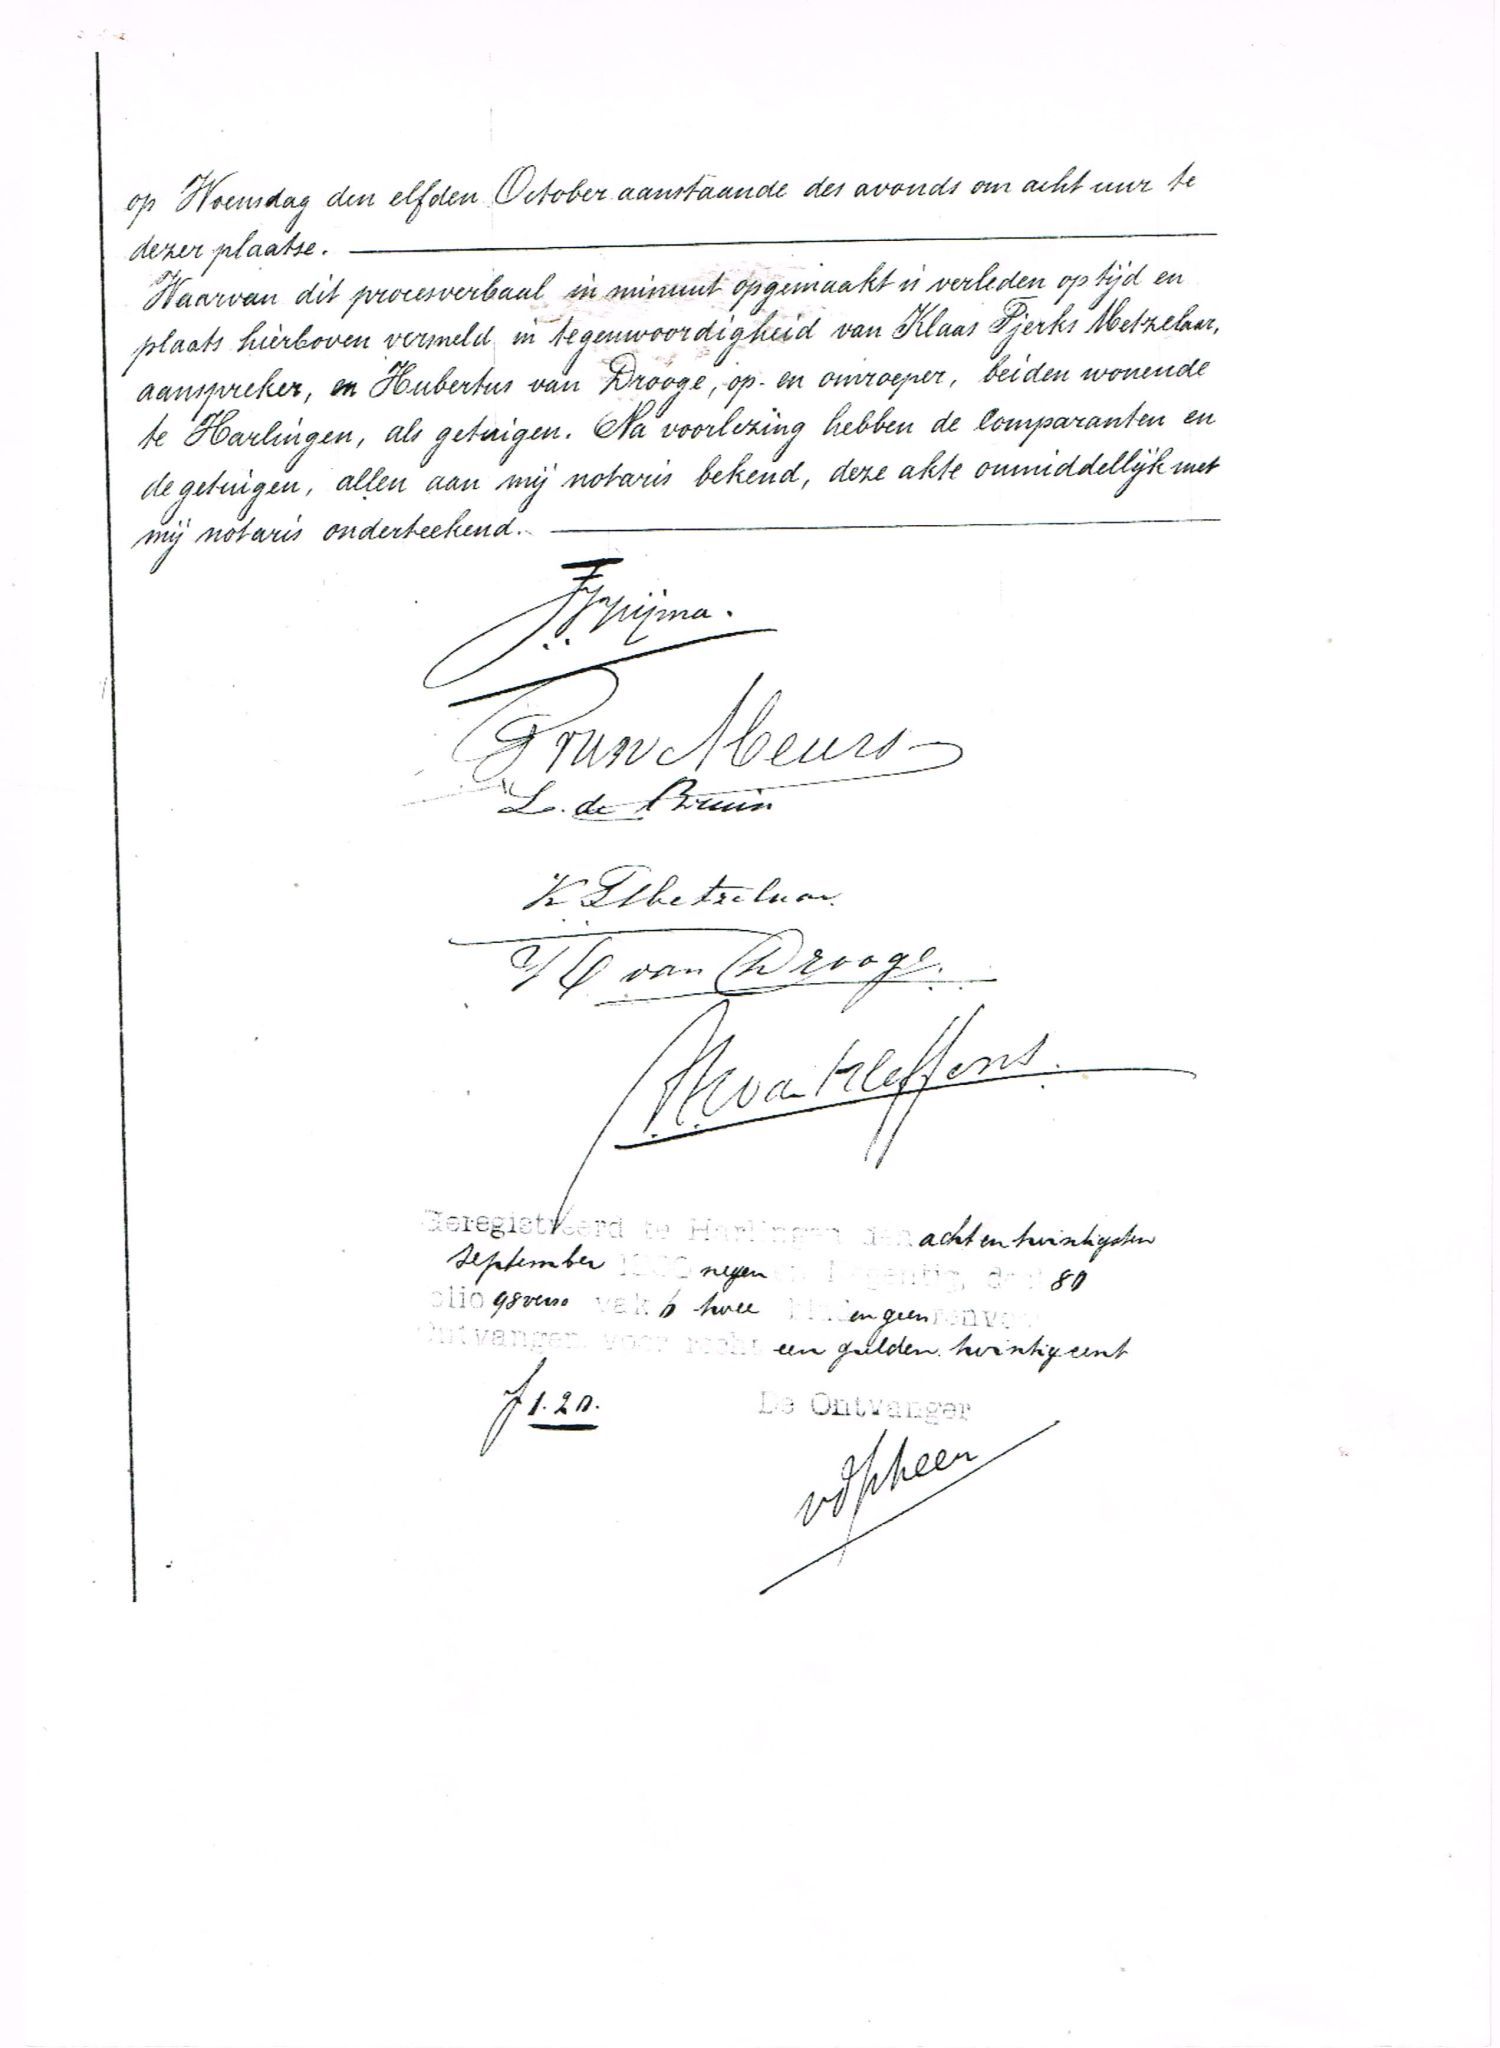 op Woensdag den elfden October aanstaande des avonds om acht uur te
dezer plaatse.
Waarvan dit procesverbaal in minuut opgemaakt is verleden op tijd en
plaats hierboven vermeld in tegenwoordigheid van Klaas Tjerks Metzelaar,
aanspreker, en Hubertus van Drooge, op- en omroeper, beiden wonende
te Harlingen, als getuigen. Na voorlezing hebben de comparanten en
de getuigen, allen aan mij notaris bekend, deze akte onmiddellijk met
mij notaris onderteekend.
P van Meurs
L. de Bruin
K T Metzelaar.
H van Drooge.
van Kleffens.
Geregistreerd te Harlingen den acht en twintigsten
September negen en negentig, deel 80
folio 98 verso vak 6 twee bladen geen renvooi
Ontvangen voor recht een gulden twintig cent
f 1.20.
De Ontvanger